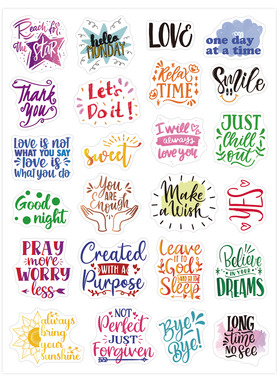 Reach for
the
STAR
hello
MONDAY
LOVE
one day
at a time
Thank
you
Let's
Do it!
Relax
TIME
Smile
LOVE IS NOT
WHAT YOU SAY
love is
WHAT YOU DO
sweet
I will
always
love you
JUST
chill
out
Good
night
YOU
ARE
Enough
Make
a Wish
YES
PRAY
more
WORRY
less
Created
WITH A
Purpose
Leave
IT TO
God
AND GO TO
SLEEP
Believe
IN YOUR
DREAMS
always
bring your
own
sunshine
NOT
Perfect
JUST
Forgiven
Bye
Bye!
LONG
time
NO SEE